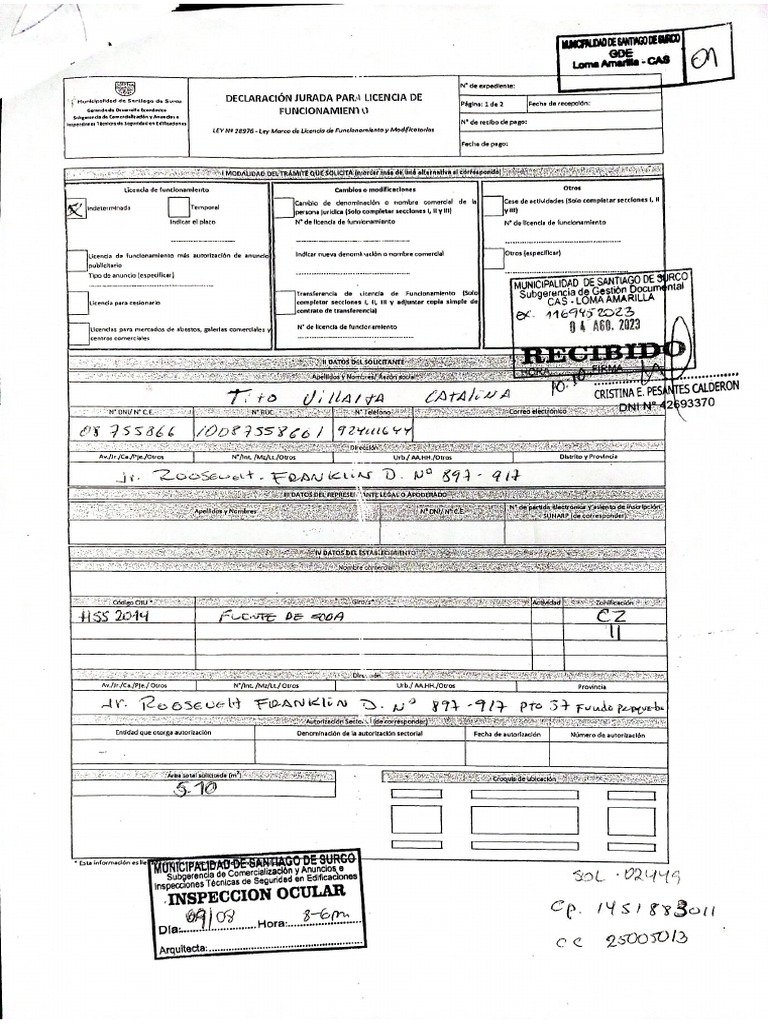 MUNICIPALIDAD DE SANTIAGO DE SURCO
GDE
Loma Amarilla - CAS
01
Municipalidad de Santiago de Surco
Gerencia de Desarrollo Económico
Subgerencia de Comercialización y Anuncios e
Inspecciones Técnicas de Seguridad en Edificaciones
DECLARACIÓN JURADA PARA LICENCIA DE
FUNCIONAMIENTO
LEY Nº 28976 - Ley Marco de Licencia de Funcionamiento y Modificatorias
N° de expediente:
Página: 1 de 2
Fecha de recepción:
N° de recibo de pago:
Fecha de pago:
I MODALIDAD DEL TRÁMITE QUE SOLICITA (marcar más de una alternativa si corresponde)
Licencia de funcionamiento
X Indeterminada
Temporal
Indicar el plazo
Licencia de funcionamiento más autorización de anuncio
publicitario
Tipo de anuncio (especificar)
Licencia para cesionario
Licencias para mercados de abastos, galerías comerciales y
centros comerciales
Cambios o modificaciones
Cambio de denominación o nombre comercial de la
persona jurídica (Solo completar secciones I, II y III)
N° de licencia de funcionamiento
Indicar nueva denominación o nombre comercial
Transferencia de Licencia de Funcionamiento (Solo
completar secciones I, II, III y adjuntar copia simple de
contrato de transferencia)
N° de licencia de funcionamiento
Otros
Cese de actividades (Solo completar secciones I, II
y III)
N° de licencia de funcionamiento
Otros (especificar)
MUNICIPALIDAD DE SANTIAGO DE SURCO
Subgerencia de Gestión Documental
CAS - LOMA AMARILLA
ex. 1169452023
04 AGO. 2023
RECIBIDO
HORA 10:10 FIRMA
CRISTINA E. PESANTES CALDERON
DNI N° 42693370
II DATOS DEL SOLICITANTE
Apellidos y Nombres/ Razón social
Tito Villalta Catalina
N° DNI/ N° C.E. N° RUC N° Teléfono Correo electrónico
08755866 10087558661 924111644
Dirección
Av./Jr./Ca./Pje./Otros N°/Int./Mz/Lt./Otros Urb./ AA.HH./Otros Distrito y Provincia
Jr. Roosevelt. Franklin D. Nº 897-917
III DATOS DEL REPRESENTANTE LEGAL O APODERADO
Apellidos y Nombres N° DNI/ N° C.E. N° de partida electrónica y asiento de inscripción
SUNARP (de corresponder)
IV DATOS DEL ESTABLECIMIENTO
Nombre comercial
Código CIIU * Giro/s* Actividad Zonificación
HSS 2014 FUENTE DE SODA CZ
Dirección
Av./Jr./Ca./Pje./ Otros N°/Int./Mz/Lt./ Otros Urb./ AA.HH./Otros Provincia
Jr. Roosevelt Franklin D. Nº 897-917 pto 37 Fundo
Autorización Sectorial (de corresponder)
Entidad que otorga autorización Denominación de la autorización sectorial Fecha de autorización Número de autorización
Área total solicitada (m²)
5.10
Croquis de ubicación
* Esta información es
MUNICIPALIDAD DE SANTIAGO DE SURCO
Subgerencia de Comercialización y Anuncios e
Inspecciones Técnicas de Seguridad en Edificaciones
INSPECCION OCULAR
Día: 09/08 Hora: 3-6pm
Arquitecta:
SOL. 02449
Cp. 1451883011
CC 25005013